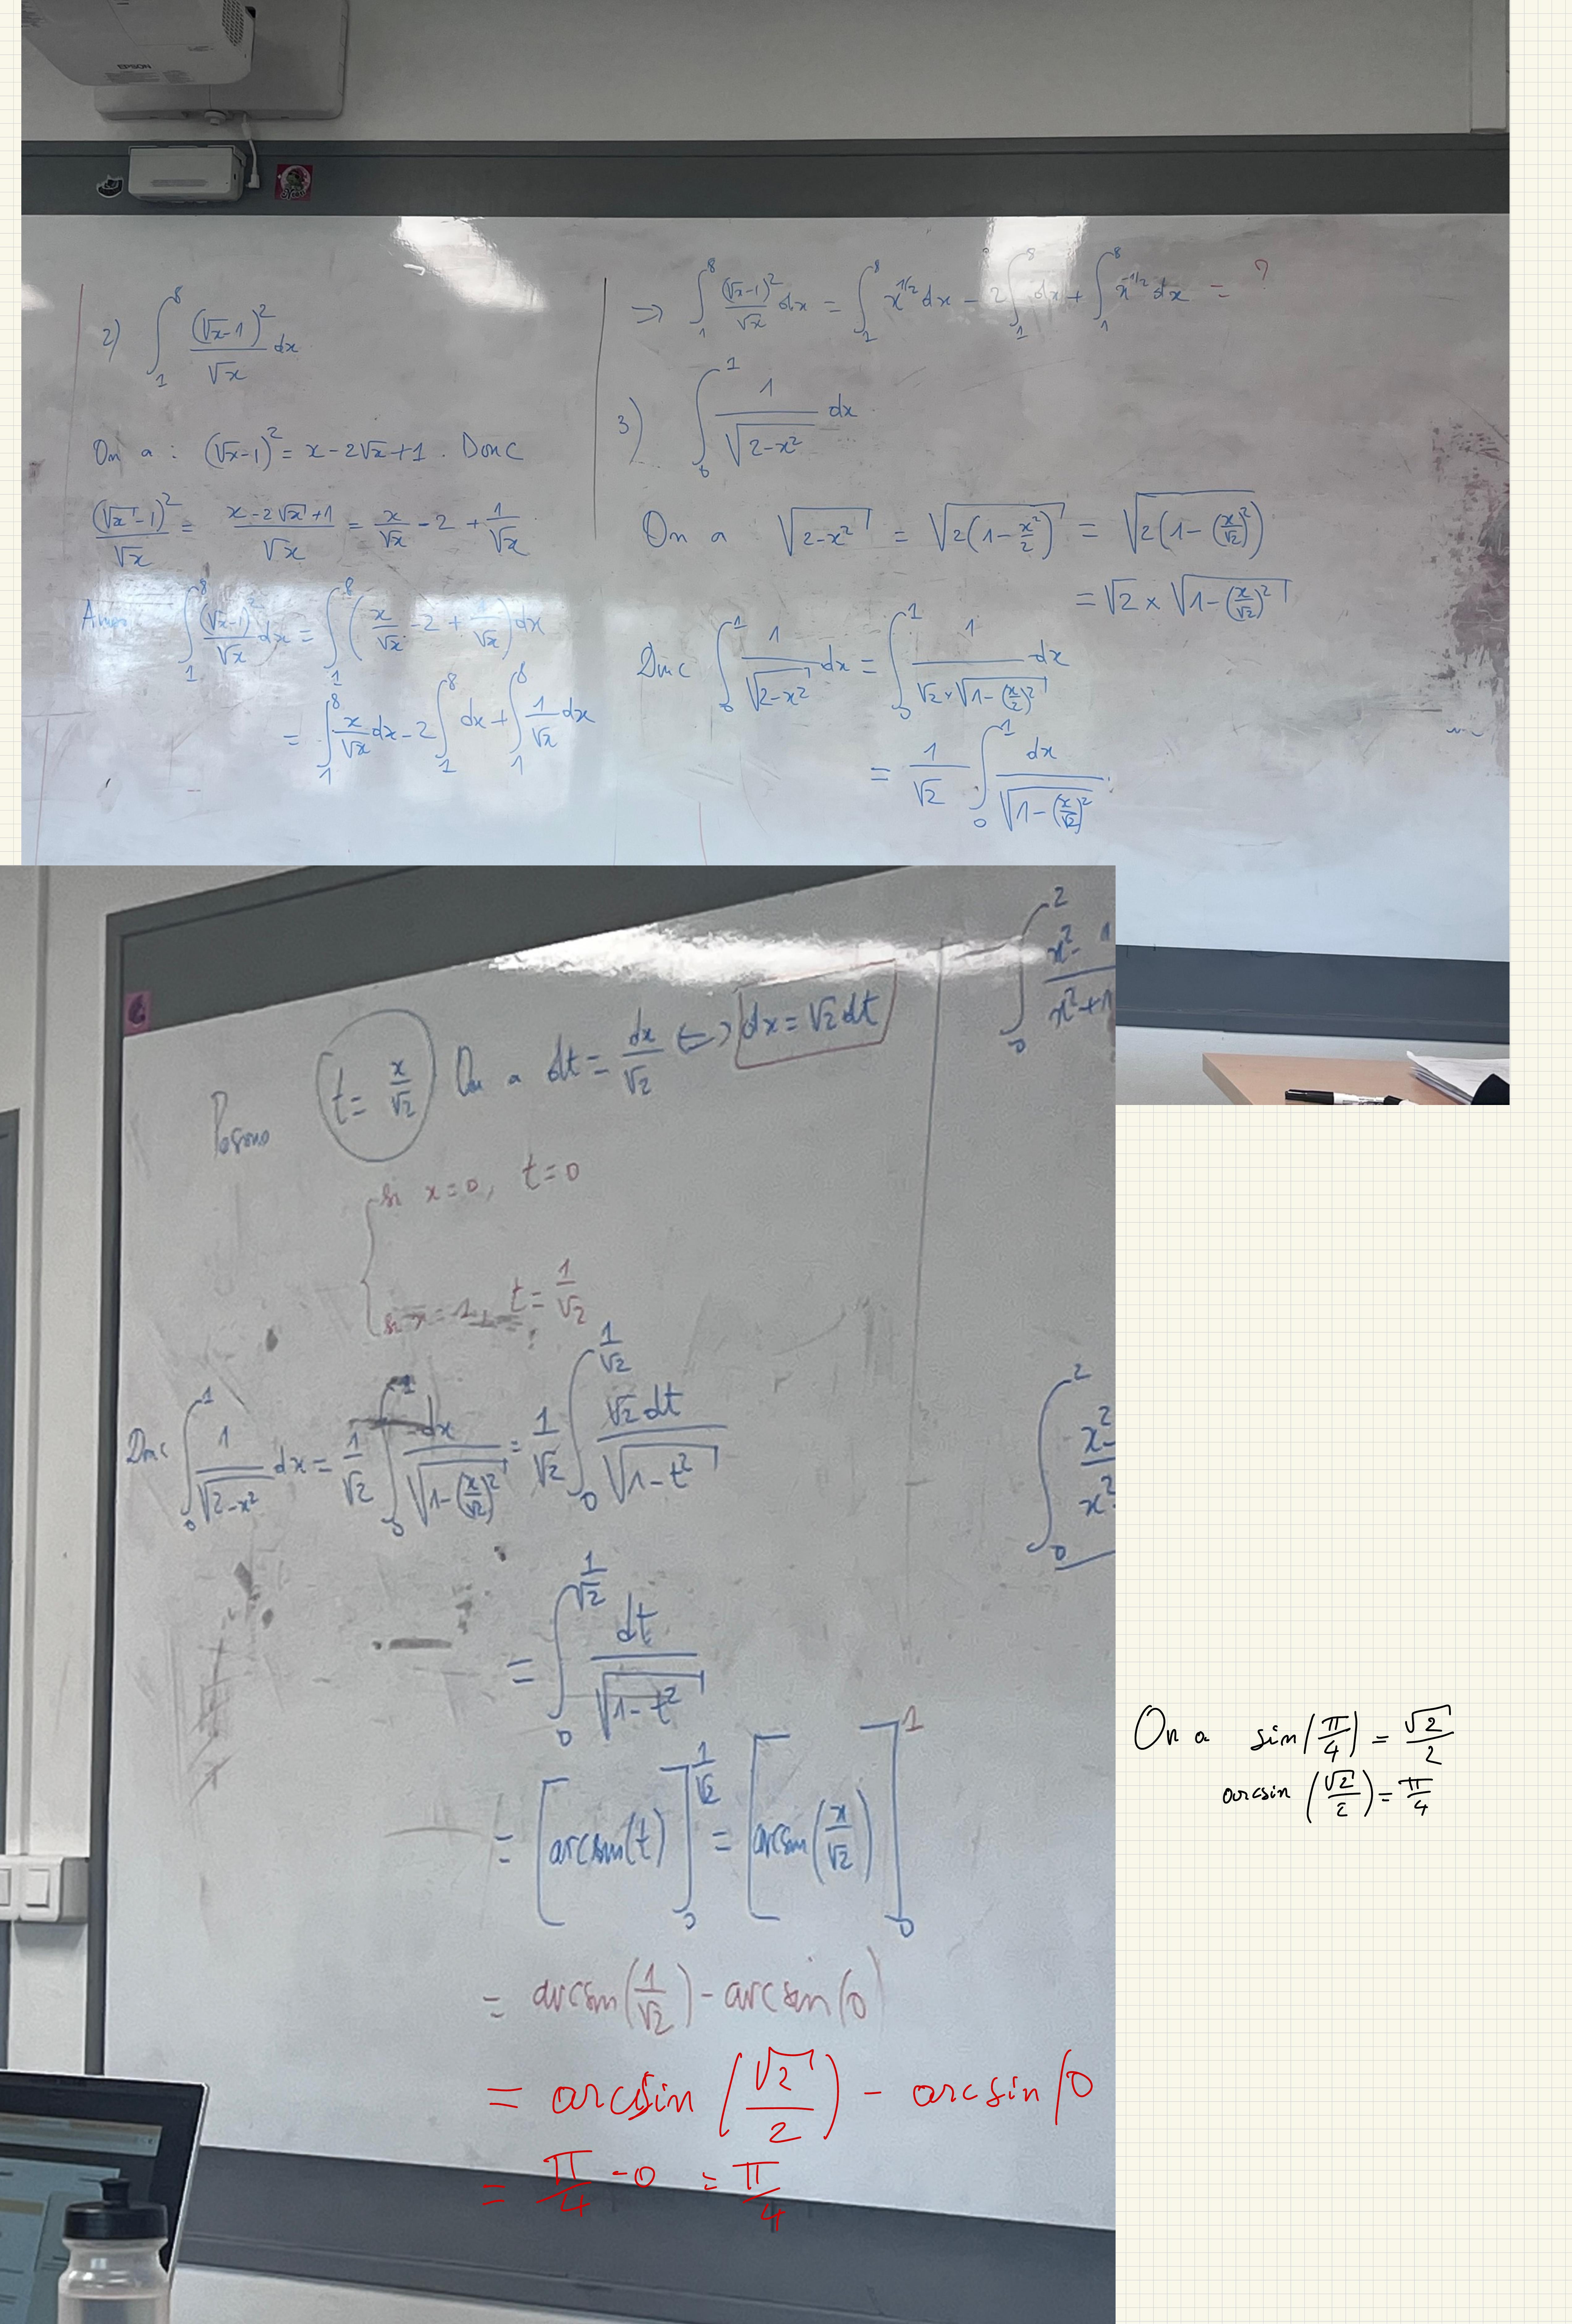 EPSON
2) ∫₁⁸ (√x-1)²/√x dx
On a : (√x-1)² = x-2√x+1. Donc
(√x-1)²/√x = (x-2√x+1)/√x = x/√x - 2 + 1/√x
∫₁⁸ (√x-1)²/√x dx = ∫₁⁸ (x/√x - 2 + 1/√x) dx
= ∫₁⁸ x/√x dx - 2∫₁⁸ dx + ∫₁⁸ 1/√x dx
⇒ ∫₁⁸ (√x-1)²/√x dx = ∫₁⁸ x^(1/2) dx - 2∫₁⁸ dx + ∫₁⁸ x^(-1/2) dx = ?
3) ∫₀¹ 1/√(2-x²) dx
On a √(2-x²) = √(2(1-x²/2)) = √(2(1-(x/√2)²))
= √2 × √(1-(x/√2)²)
Donc ∫₀¹ 1/√(2-x²) dx = ∫₀¹ 1/(√2×√(1-(x/2)²)) dx
= 1/√2 ∫₀¹ dx/√(1-(x/√2)²)
Posons t = x/√2 On a dt = dx/√2 ⇔ dx = √2 dt
si x=0, t=0
si x=1, t = 1/√2
Donc ∫₀¹ 1/√(2-x²) dx = 1/√2 ∫₀¹ dx/√(1-(x/√2)²) = 1/√2 ∫₀^(1/√2) √2 dt/√(1-t²)
= ∫₀^(1/√2) dt/√(1-t²)
= [arcsin(t)]₀^(1/√2) = [arcsin(x/√2)]₀¹
= arcsin(1/√2) - arcsin(0)
= arcsin(√2/2) - arcsin(0
= π/4 - 0 = π/4
∫₀² x²-1/x²+1
∫₀² x²-/x²
On a sin(π/4) = √2/2
arcsin(√2/2) = π/4